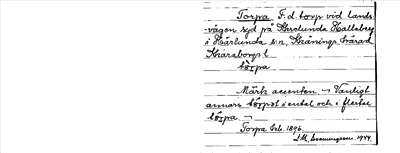 Torpa F. d. torp vid lands-
vägen syd på Herslunda Hallebey
i Härlunda s:n, Skånings härad
Skaraborgs l.
tòrpa
Märk accenten. – Vanligt
annars tórpət s. entel och i flertal
tórpa. –
Torpa Orb. 1896.
J.M. Svenningsson. 1934.